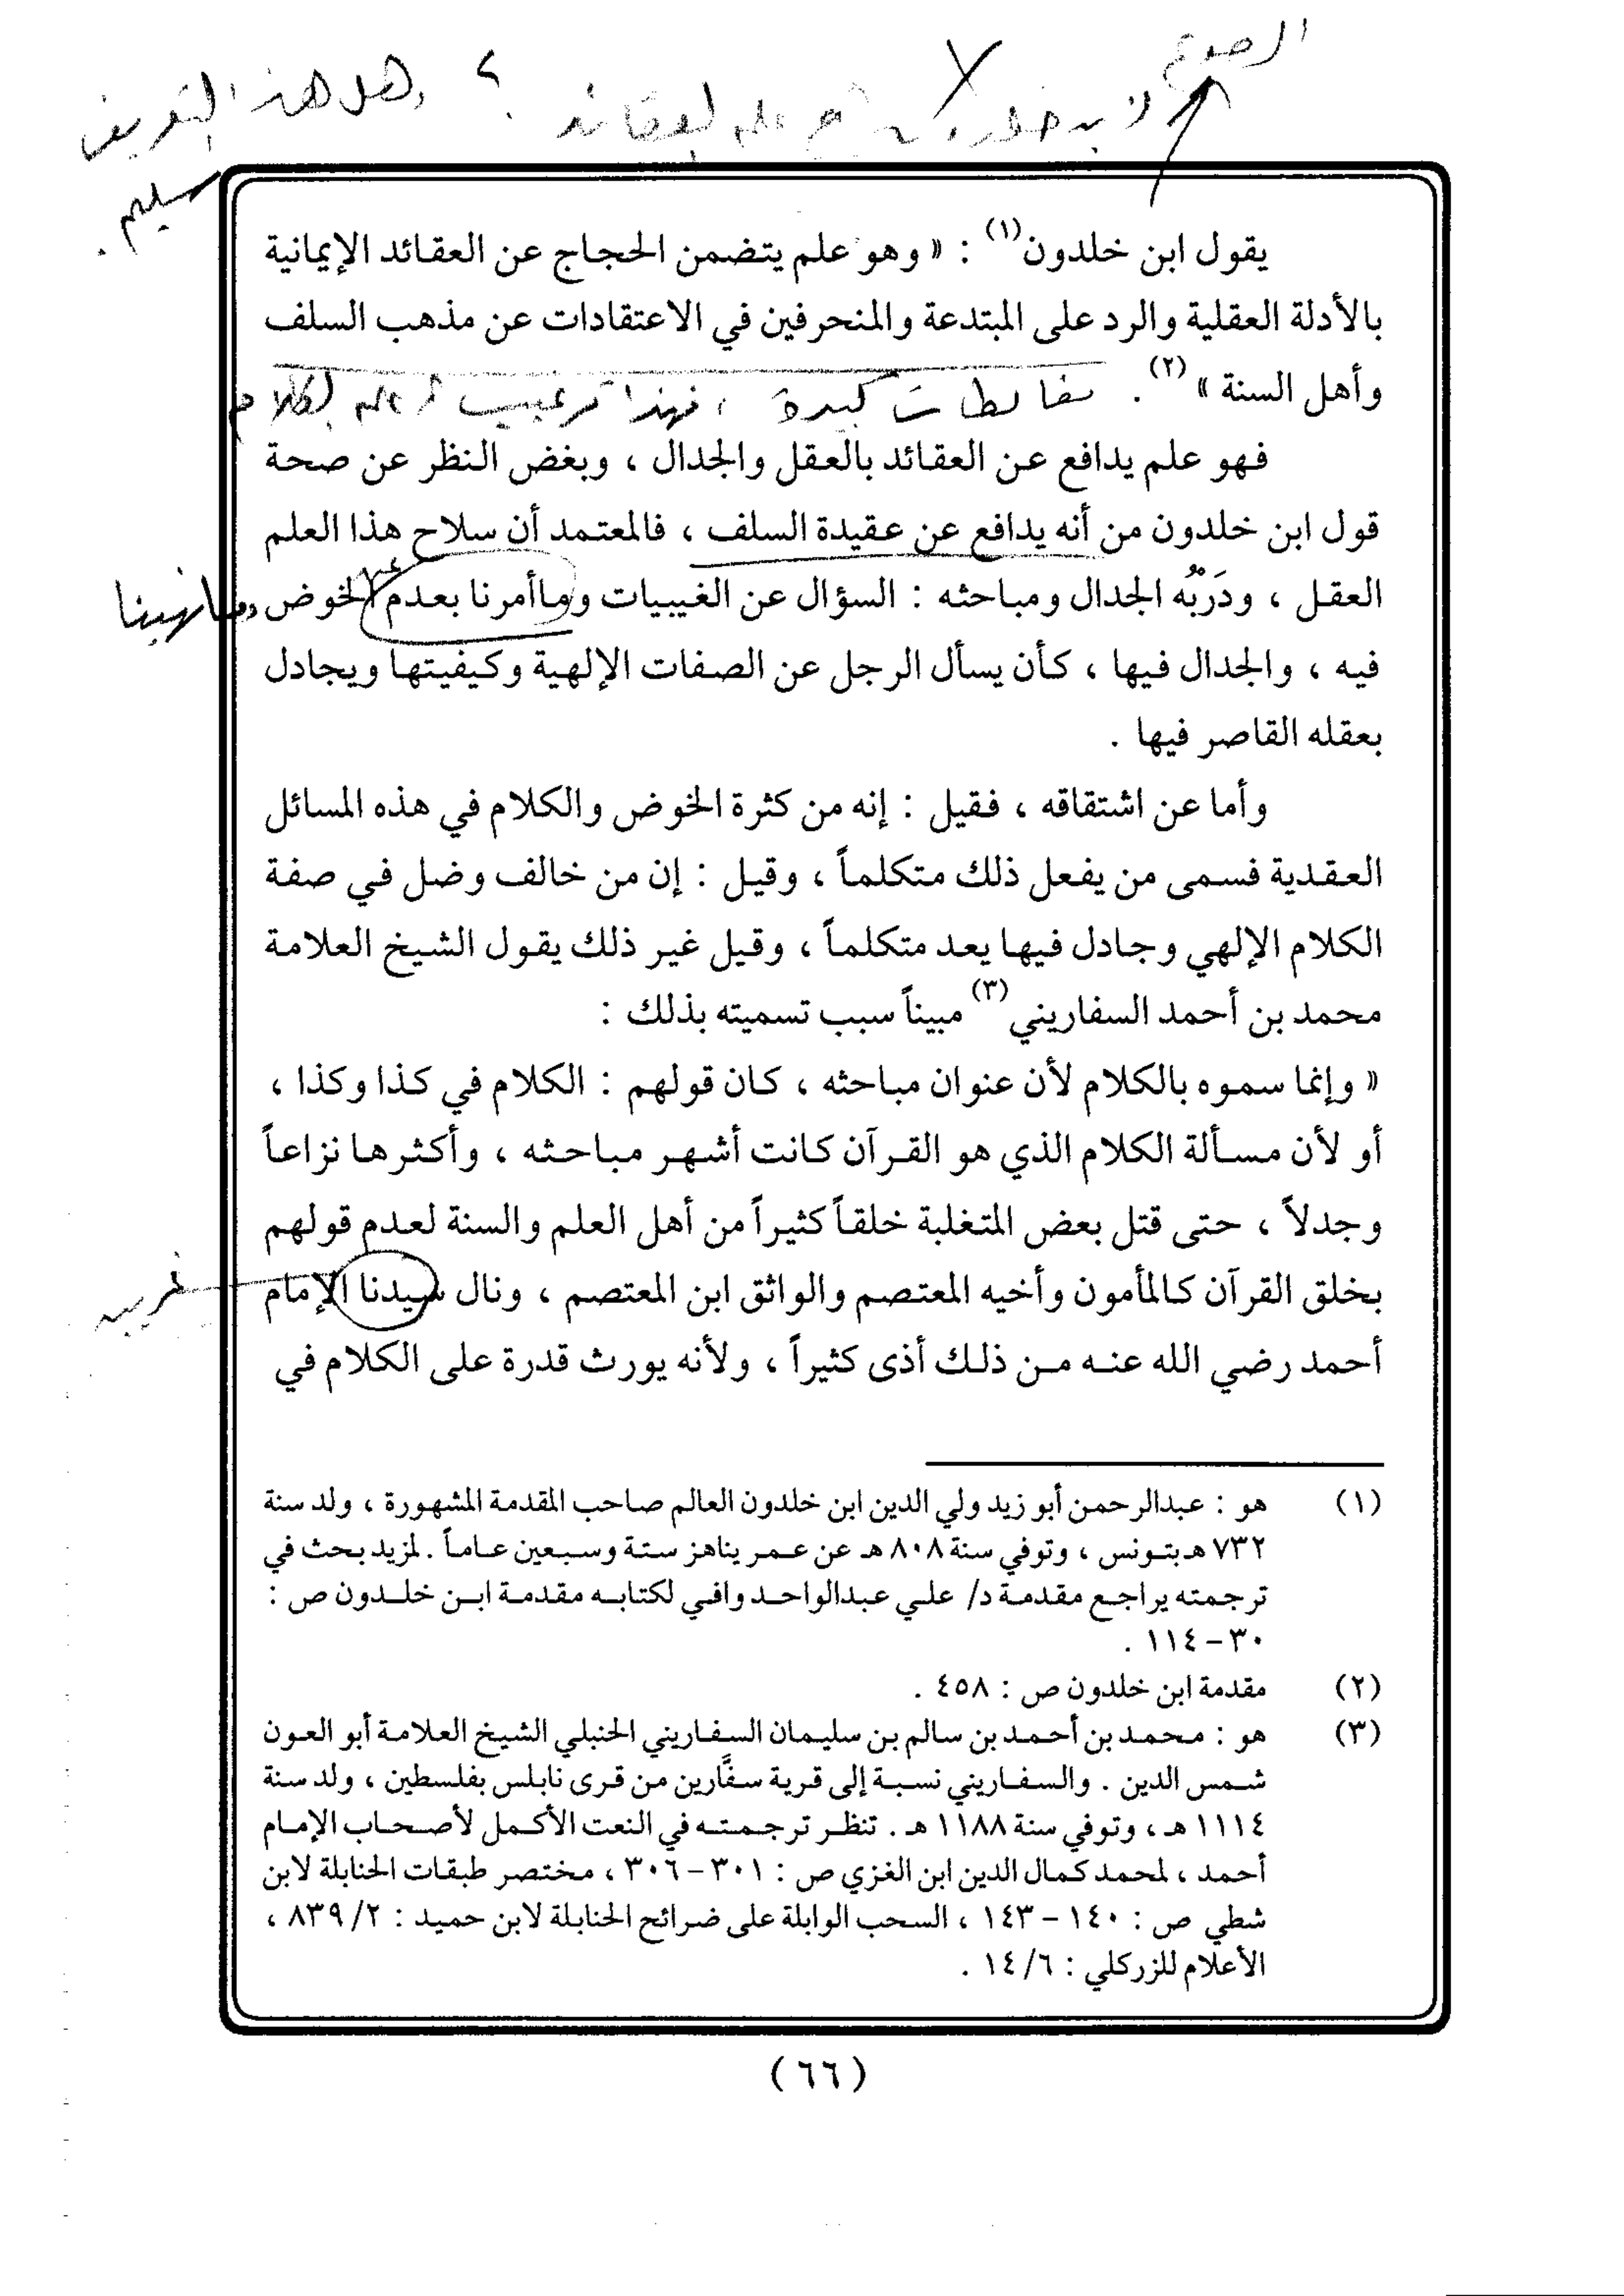 وهل هذا التعريف
سليم .
يقول ابن خلدون(١) : « وهو علم يتضمن الحجاج عن العقائد الإيمانية
بالأدلة العقلية والرد على المبتدعة والمنحرفين في الاعتقادات عن مذهب السلف
وأهل السنة »(٢) . مغالطات كبيرة ، فهذا ترغيب في علم الكلام
فهو علم يدافع عن العقائد بالعقل والجدال ، وبغض النظر عن صحة
قول ابن خلدون من أنه يدافع عن عقيدة السلف ، فالمعتمد أن سلاح هذا العلم
العقل ، ودَرْبُه الجدال ومباحثه : السؤال عن الغيبيات وماأمرنا بعدم الخوض
وما نهينا
فيه ، والجدال فيها ، كأن يسأل الرجل عن الصفات الإلهية وكيفيتها ويجادل
بعقله القاصر فيها .
وأما عن اشتقاقه ، فقيل : إنه من كثرة الخوض والكلام في هذه المسائل
العقدية فسمى من يفعل ذلك متكلماً ، وقيل : إن من خالف وضل في صفة
الكلام الإلهي وجادل فيها يعد متكلماً ، وقيل غير ذلك يقول الشيخ العلامة
محمد بن أحمد السفاريني(٣) مبيناً سبب تسميته بذلك :
« وإنما سموه بالكلام لأن عنوان مباحثه ، كان قولهم : الكلام في كذا وكذا ،
أو لأن مسألة الكلام الذي هو القرآن كانت أشهر مباحثه ، وأكثرها نزاعاً
وجدلاً ، حتى قتل بعض المتغلبة خلقاً كثيراً من أهل العلم والسنة لعدم قولهم
بخلق القرآن كالمأمون وأخيه المعتصم والواثق ابن المعتصم ، ونال سيدنا الإمام
غريبه
أحمد رضي الله عنه من ذلك أذى كثيراً ، ولأنه يورث قدرة على الكلام في
(١) هو : عبدالرحمن أبو زيد ولي الدين ابن خلدون العالم صاحب المقدمة المشهورة ، ولد سنة
٧٣٢ هـ بتونس ، وتوفي سنة ٨٠٨ هـ عن عمر يناهز ستة وسبعين عاماً . لمزيد بحث في
ترجمته يراجع مقدمة د/ علي عبدالواحد وافي لكتابه مقدمة ابن خلدون ص :
٣٠ - ١١٤ .
(٢) مقدمة ابن خلدون ص : ٤٥٨ .
(٣) هو : محمد بن أحمد بن سالم بن سليمان السفاريني الحنبلي الشيخ العلامة أبو العون
شمس الدين . والسفاريني نسبة إلى قرية سفَّارين من قرى نابلس بفلسطين ، ولد سنة
١١١٤ هـ ، وتوفي سنة ١١٨٨ هـ . تنظر ترجمته في النعت الأكمل لأصحاب الإمام
أحمد ، لمحمد كمال الدين ابن الغزي ص : ٣٠١ - ٣٠٦ ، مختصر طبقات الحنابلة لابن
شطي ص : ١٤٠ - ١٤٣ ، السحب الوابلة على ضرائح الحنابلة لابن حميد : ٨٣٩/٢ ،
الأعلام للزركلي : ١٤/٦ .
(٦٦)